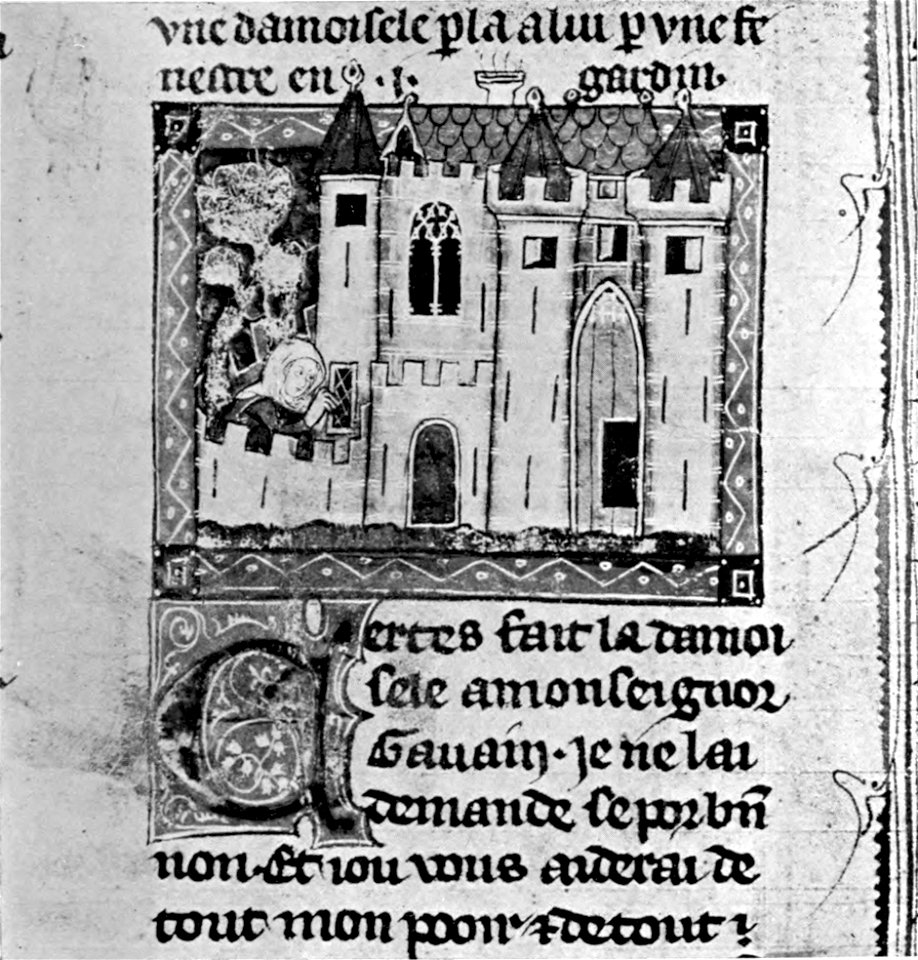 vne damoisele p̱la a lui p̱ vne fe
nestre en ·i· gardin·
Certes fait la damoi
sele a monseignor
Gauain· Je ne lai
demande se por bn̄
non· Et iou vous aiderai de
tout mon pooir ⁊ de tout